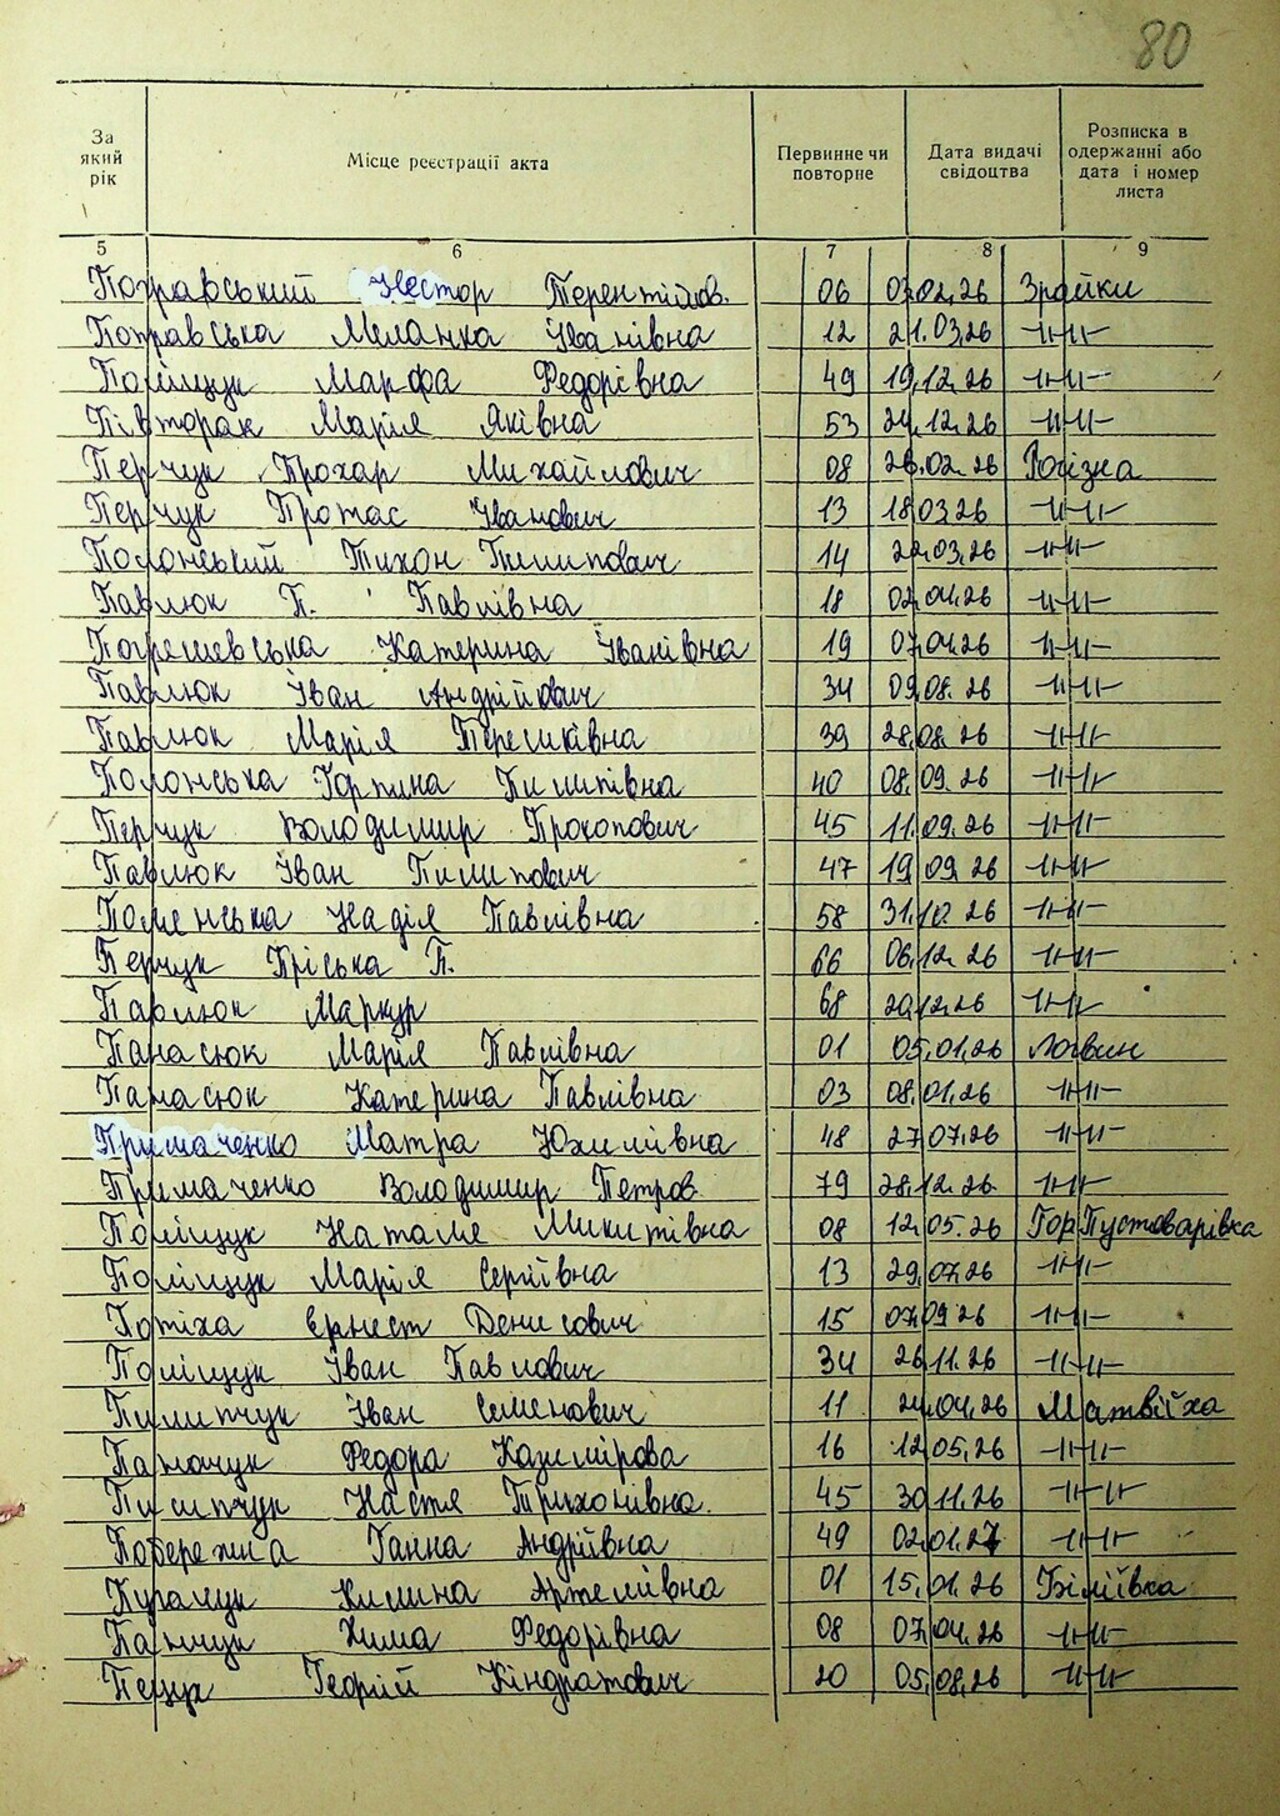 80
За який рік
Місце реєстрації акта
Первинне чи повторне
Дата видачі свідоцтва
Розписка в одержанні або дата і номер листа
5 6 7 8 9
Нестор Терентійов. 06 07.02.26 Зрайки
Меланка Іванівна 12 21.03.26 -ıı-ıı-
Поліщук Марфа Федорівна 49 19.12.26 -ıı-ıı-
Півторак Марія Яківна 53 24.12.26 -ıı-ıı-
Перчук Прохар Михайлович 08 26.02.26 Рогізна
Перчук Протас Іванович 13 18.03.26 -ıı-ıı-
Полонський Тихон Пилипович 14 22.03.26 -ıı-ıı-
Павлюк П. Павлівна 18 02.04.26 -ıı-ıı-
Погрешевська Катерина Іванівна 19 07.04.26 -ıı-ıı-
Павлюк Іван Андрійович 34 09.08.26 -ıı-ıı-
Павлюк Марія 39 28.08.26 -ıı-ıı-
Полонська Горпина Пилипівна 40 08.09.26 -ıı-ıı-
Перчук Володимир Прокопович 45 11.09.26 -ıı-ıı-
Павлюк Іван Пилипович 47 19.09.26 -ıı-ıı-
Надія Павлівна 58 31.10.26 -ıı-ıı-
Перчук Пріська П. 66 06.12.26 -ıı-ıı-
Павлюк Маркур 68 20.12.26 -ıı-ıı-
Панасюк Марія Павлівна 01 05.01.26 Логвин
Панасюк Катерина Павлівна 03 08.01.26 -ıı-ıı-
Примаченко Матра Юхимівна 48 27.07.26 -ıı-ıı-
Примаченко Володимир Петров. 79 28.12.26 -ıı-ıı-
Поліщук Наталя Микитівна 08 12.05.26 Гор Пустоварівка
Поліщук Марія Сергіївна 13 29.07.26 -ıı-ıı-
Потіха Ернест Денисович 15 07.09.26 -ıı-ıı-
Поліщук Іван Павлович 34 26.11.26 -ıı-ıı-
Пилипчук Іван Семенович 11 24.04.26 Матвіїха
Федора Казимірова 16 12.05.26 -ıı-ıı-
Пилипчук Настя Трихонівна. 45 30.11.26 -ıı-ıı-
Побережна Ганна Андріївна 49 02.01.27 -ıı-ıı-
Килина Артемівна 01 15.01.26 Біліївка
Панчук Хима Федорівна 08 07.04.26 -ıı-ıı-
Пещук Георгій Кіндратович 20 05.08.26 -ıı-ıı-